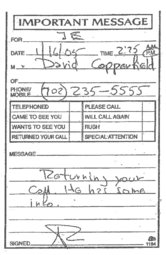 IMPORTANT MESSAGE
FOR JE
DATE 1/14/05 TIME 2:75 A.M. P.M.
M. David Copperfield
OF
PHONE/ MOBILE (702) 235-5555
TELEPHONED PLEASE CALL
CAME TO SEE YOU WILL CALL AGAIN
WANTS TO SEE YOU RUSH
RETURNED YOUR CALL SPECIAL ATTENTION
MESSAGE
Returning your
Call. He has some
info.
SIGNED
1184